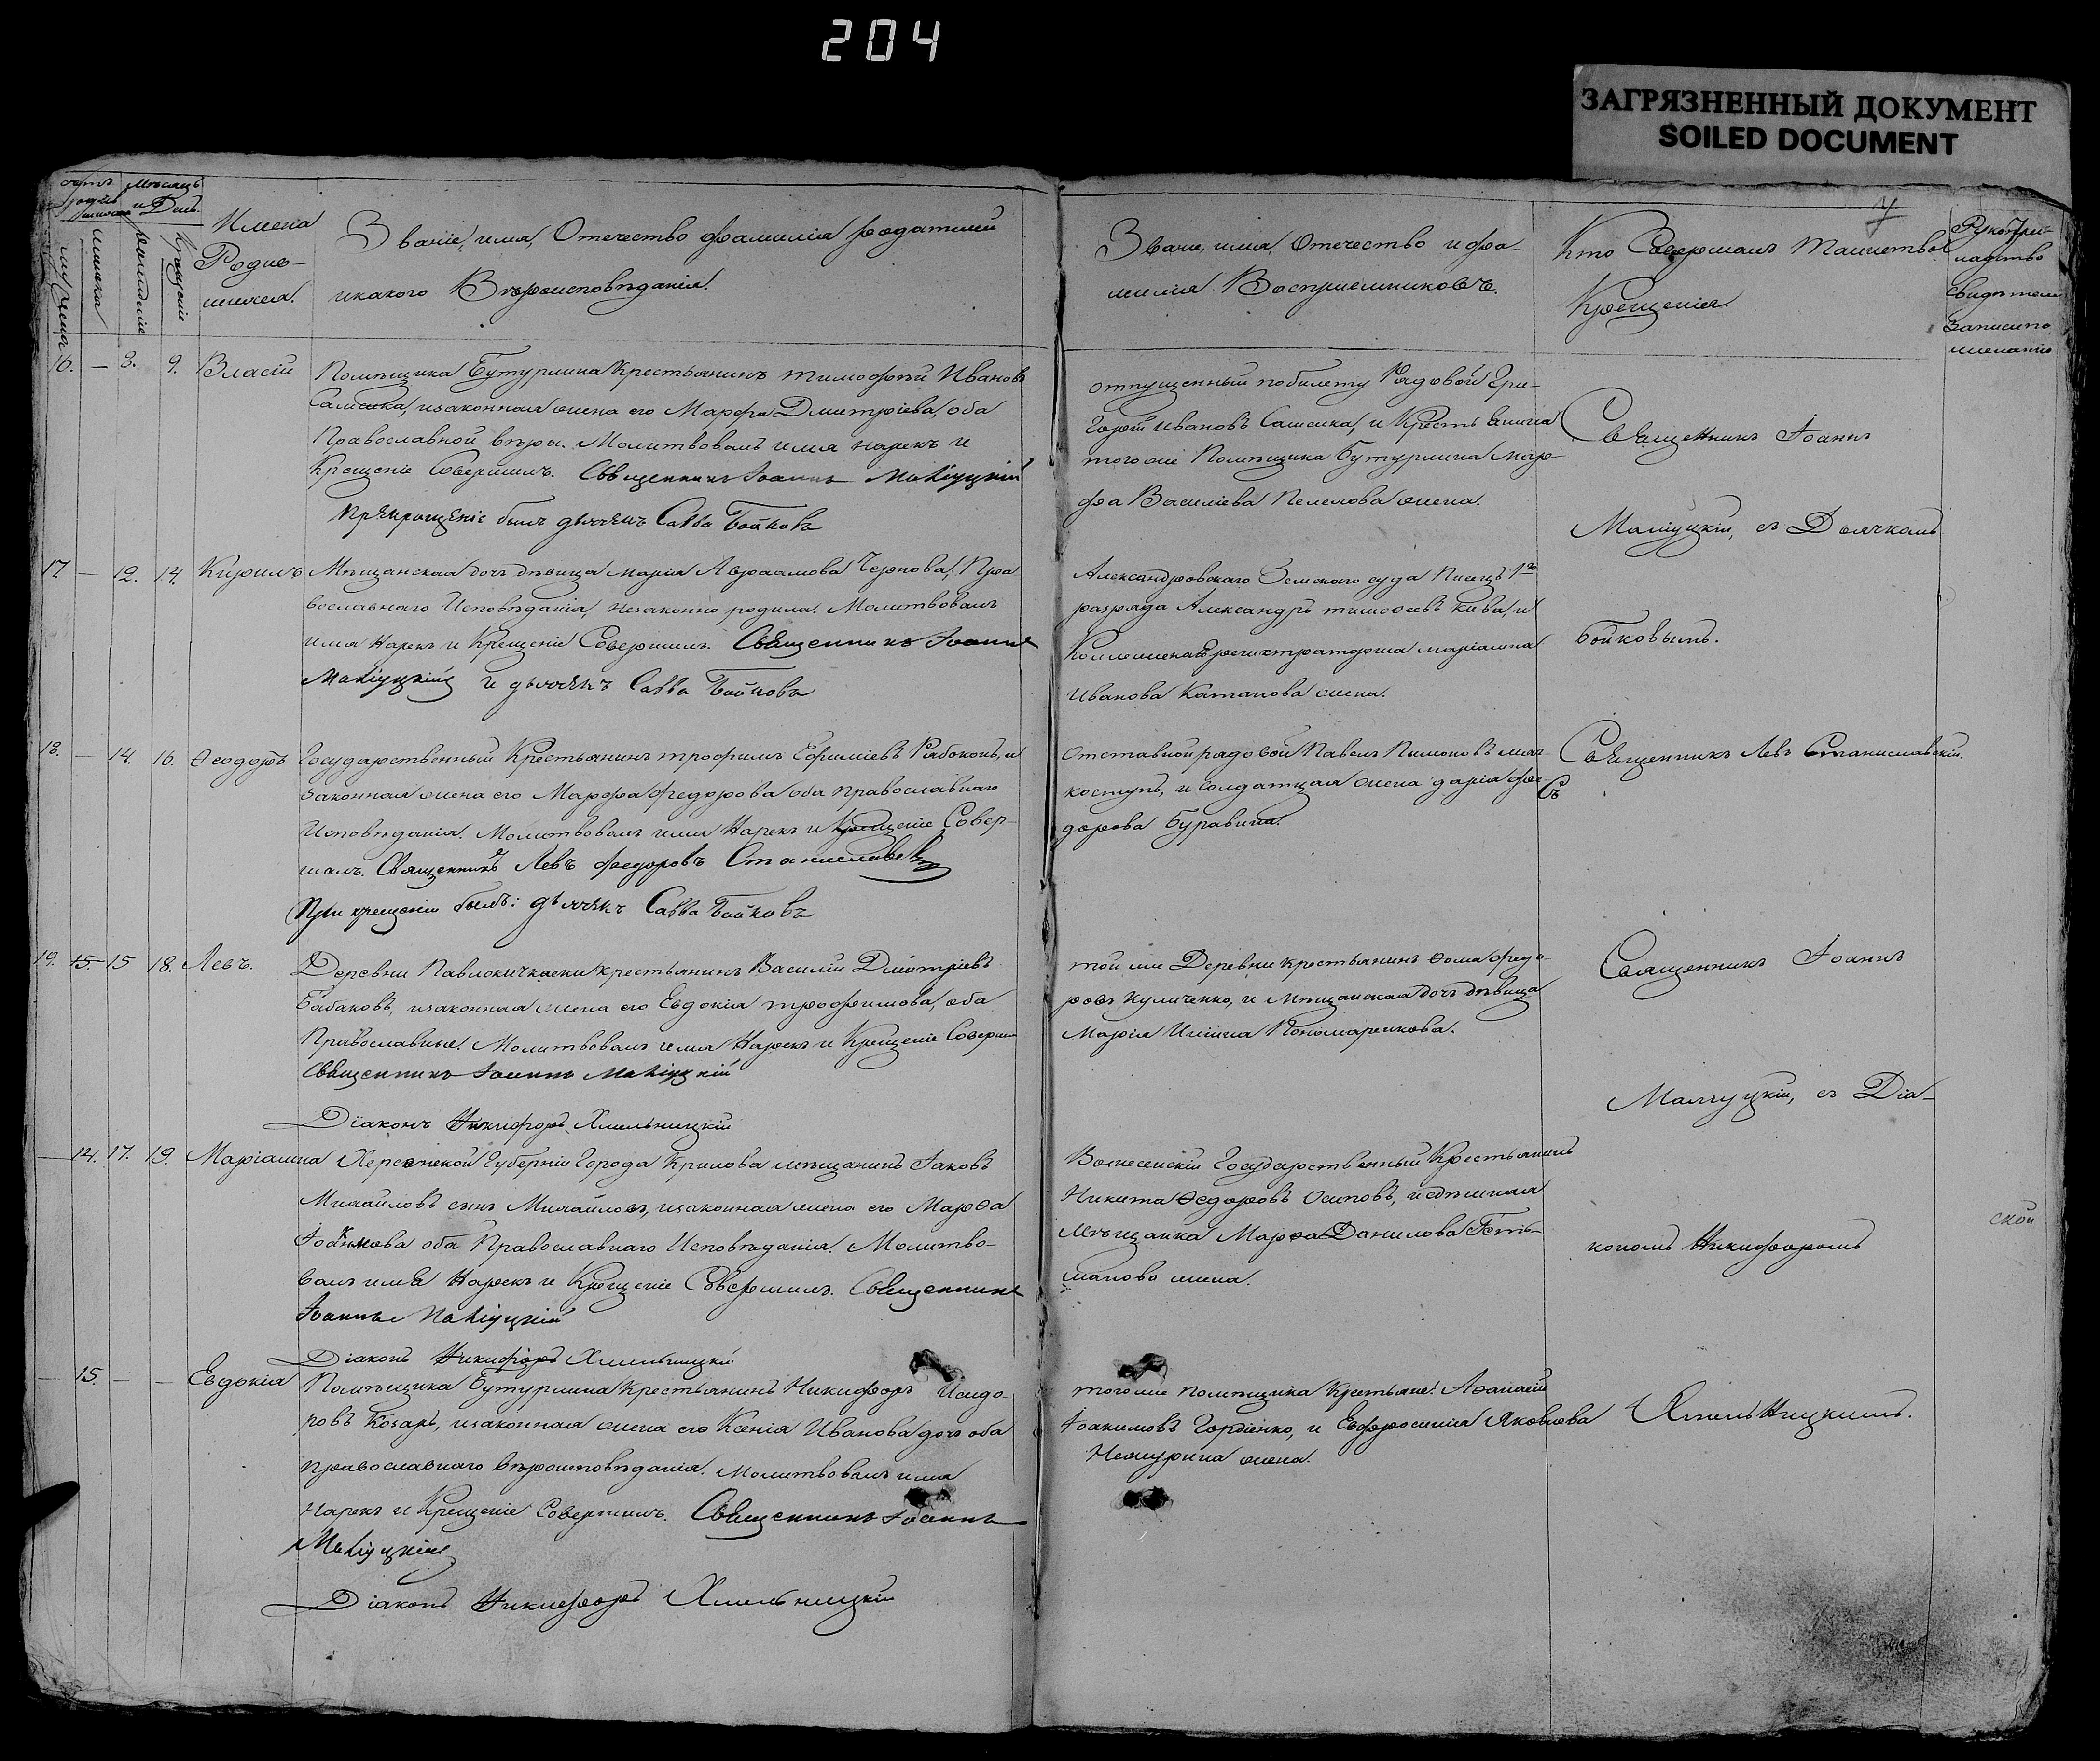 204
ЗАГРЯЗНЕННЫЙ ДОКУМЕНТ
SOILED DOCUMENT
7
Мѣсяцъ
и День.
Имена
Родив-
шихся.
рожденіе
крещеніе
Званіе, имя, Отечество фамилія родителей
икакого Вѣроисповѣданія.
Званіе, имя, Отечество и фа-
милія Воспріемниковъ.
Кто Совершалъ Таинство
Крещенія.
Рукопри-
кладство
свидѣтелей
записи по
желанію
16. — 8. 9. Власій
Помѣщика Бутурлина Крестьянинъ тимофѣй Ивановъ
Самсика, изаконная жена его Марфа Дмитріева, оба
Православной вѣры. Молитвовалъ имя нарекъ и
Крещеніе Совершилъ. Священникъ Іоаннъ Маліуцкій
При крещеніе былъ дьячекъ Савва Бойковъ
отпущенный побилету Рядовой Гри-
горій Ивановъ Самсика, и Крестьянина
тогоже Помѣщика Бутурлина Мар-
фа Василіева Пелехова жена.
Священникъ Іоаннъ
Маліуцкій, съ Дьячкомъ
Бойковымъ.
17. — 12. 14. Кирилъ
Мѣщанская дочь дѣвица марія Авраамова Чернова, Пра-
вославнаго Исповѣданія, незаконно родила. Молитвовалъ
имя Нарекъ и Крещеніе Совершилъ. Священникъ Іоаннъ
Маліуцкій и дьячекъ Савва Бойковъ
Александровскаго Земскаго суда Писецъ 1го
разряда Александръ тимофеевъ Кива, и
Коллежская регистраторша маріамна
Иванова Катанова жена.
18. — 14. 16. Ѳеодоръ
Государственный Крестьянинъ трофимъ Ефиміевъ Рябоконь, и
законная жена его Марфа федорова оба православнаго
Исповѣданія. Молитвовалъ имя Нарекъ и Крещеніе Совер-
шалъ. Священникъ Левъ федоровъ Станиславскій
При крещеніи былъ: дьячекъ Савва Бойковъ
Отставной рядовой Павелъ Пимоновъ мас-
коступъ, и солдатская жена дарія фе-
дорова Буравина.
Священникъ Левъ Станиславскій.
съ
19. 15. 15 18. Левъ.
Деревни Павлокичкаски крестьянинъ Василій Дмитріевъ
Бабаковъ, изаконная жена его Евдокія трофимова, оба
Православные. Молитвовалъ имя Нарекъ и Крещеніе Соверши
Священникъ Іоаннъ Маліуцкій
Діаконъ Никифоръ Хмельницкій
той же Деревни крестьянинъ Ѳома федо-
ровъ Куличенко, и Мѣщанская дочь дѣвица
Марія Ильина Пономаренкова.
Священникъ Іоаннъ
Маліуцкій, съ Діа-
кономъ Никифоромъ
Хмельницкимъ.
— 14. 17. 19. Маріамна
Херсонской Губерніи Города Крилова мѣщанинъ Іаковъ
Михайловъ сынъ Михайловъ, изаконная жена его Марѳа
Іоакимова оба Православнаго Исповѣданія. Молитво-
валъ имя Нарекъ и Крещеніе Совершилъ. Священникъ
Іоаннъ Маліуцкій
Діаконъ Никифоръ Хмельницкій
Вознесенскій Государственный Крестьянинъ
Никита Ѳедоровъ Осиповъ, издѣшняя
Мѣщанка Марѳа Данилова Геть-
манова жена.
ской
— 15. — — Евдокія
Помѣщика Бутурлина Крестьянинъ Никифоръ Исидо-
ровъ Козарь, изаконная жена его Ксенія Иванова дочь оба
православнаго вѣроисповѣданія. Молитвовалъ имя
Нарекъ и Крещеніе Совершилъ. Священникъ Іоаннъ
Маліуцкій
Діаконъ Никифоръ Хмельницкій
тогоже помѣщика Крестьяне: Аѳанасій
Іоакимовъ Гордіенко, и Евфросинія Яковлева
Нежурина жена.